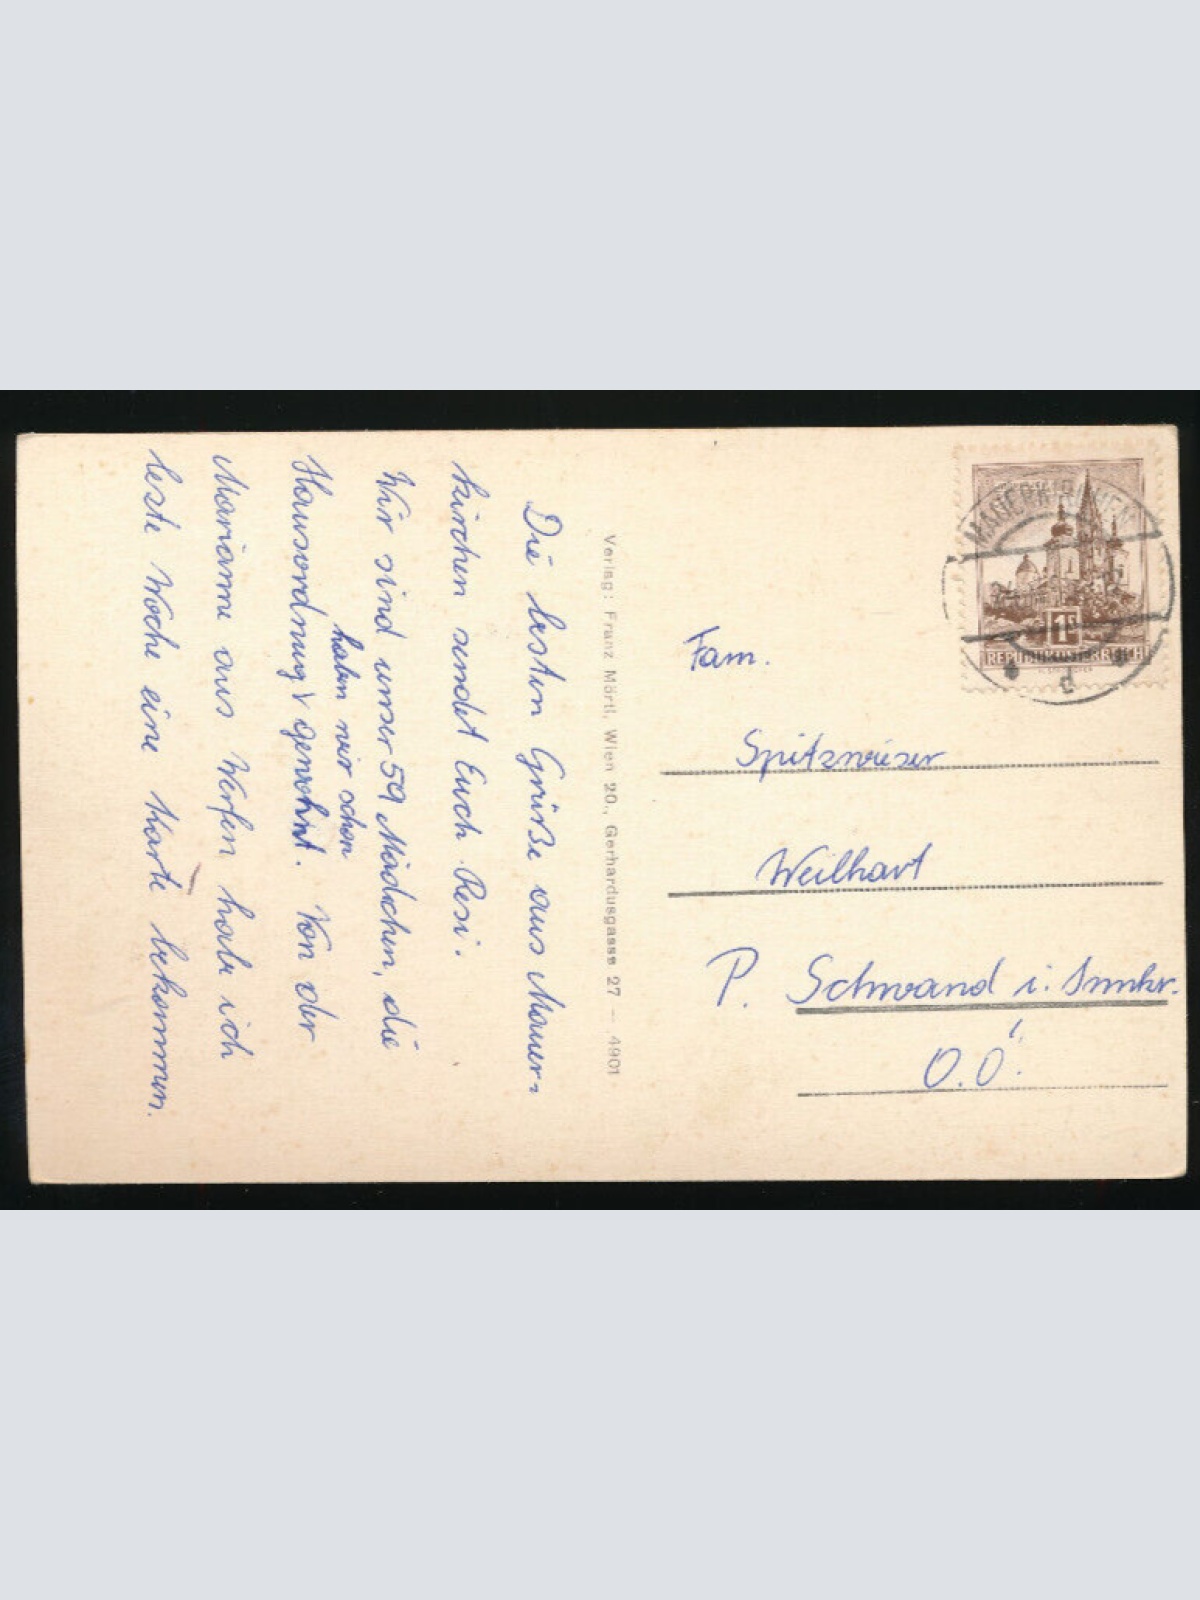 Die besten Grüße aus Mauer-
kirchen sendet Euch Resi.
Wir sind unser 59 Mädchen, die
haben wir schon
Hausordnung gewohnt. Von der
Marianne aus Werfen habe ich
leste Woche eine Karte bekommen.
Verlag: Franz Mörtl, Wien 20., Gerhardusgasse 27 — 4901
MAUERKIRCHEN
1S
REPUBLIK ÖSTERREICH
Fam.
Spitzwieser
Weilhart
P. Schwand i. Innkr.
O.Ö.